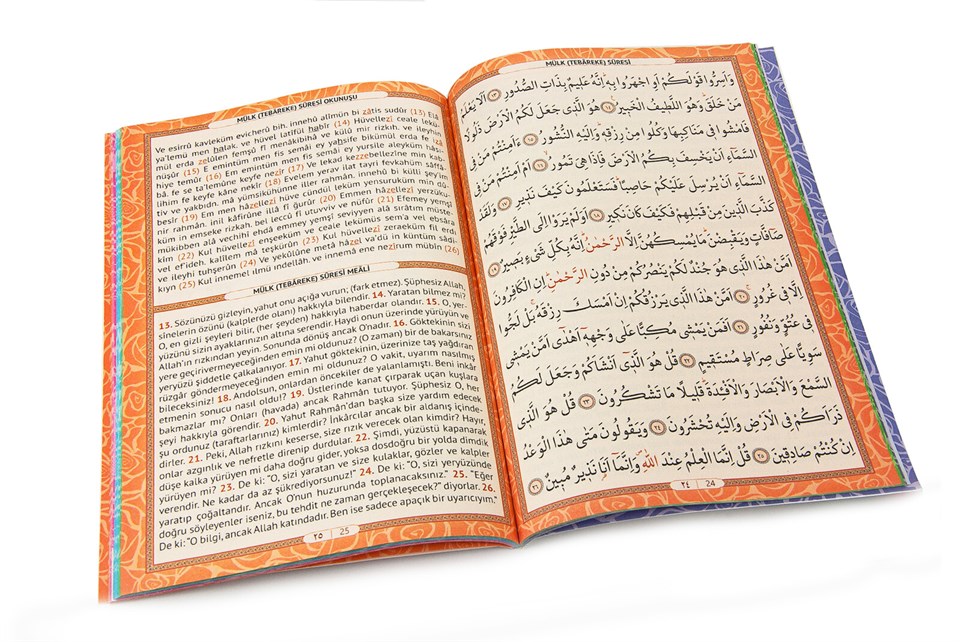 MÜLK (TEBÂREKE) SÛRESİ OKUNUŞU
Ve esirrû kavleküm evicherû bih. innehû alîmün bi zâtis sudûr (13) Elâ
ya'lemu men halak. ve hüvel latîful habîr (14) Hüvellezî ceale lekü-
mül erda zelûlen femşû fî menâkibihâ ve külû mir rizkıh. ve ileyhin
nüşûr (15) E emintüm men fis semâi ey yahsife bikümül erda fe izâ
hiye temûr (16) Em emintüm men fis semâi ey yursile aleyküm hâsı-
bâ. fe se ta'lemûne keyfe nezîr (17) Ve lekad kezzebellezîne min kab-
lihim fe keyfe kâne nekîr (18) Evelem yerav ilat tayri fevkahüm sâffâ-
tiv ve yakbıdn. mâ yümsikühünne iller rahmân. innehû bi külli şey'im
besîr (19) Em men hâzellezî hüve cündül leküm yensuruküm min dû-
nir rahmân. inil kâfirûne illâ fî ğurûr (20) Emmen hâzellezî yerzükü-
küm in emseke rizkah. bel leccû fî utuvviv ve nüfûr (21) Efemey yemşî
mükibben alâ vechihî ehdâ emmey yemşî seviyyen alâ sırâtım müste-
kîm (22) Kul hüvellezî enşeeküm ve ceale lekümüs sem'a vel ebsâra
vel ef'ideh. kalîlem mâ teşkürûn (23) Kul hüvellezî zeraeküm fil erdı
ve ileyhi tuhşerûn (24) Ve yekûlûne metâ hâzel va'dü in küntüm sâdi-
kıyn (25) Kul innemel ılmü ındellâh. ve innemâ ene nezîrum mübîn (26)
MÜLK (TEBÂREKE) SÛRESİ MEÂLİ
13. Sözünüzü gizleyin, yahut onu açığa vurun; (fark etmez). Şüphesiz Allah,
sinelerin özünü (kalplerde olanı) hakkıyla bilendir. 14. Yaratan bilmez mi?
O, en gizli şeyleri bilir, (her şeyden) hakkıyla haberdar olandır. 15. O, yer-
yüzünü sizin ayaklarınızın altına serendir. Haydi onun üzerinde yürüyün ve
Allah'ın rızkından yeyin. Sonunda dönüş ancak O'nadır. 16. Göktekinin sizi
yere geçirivermeyeceğinden emin mi oldunuz? (O zaman) bir de bakarsınız
yeryüzü şiddetle çalkalanıyor. 17. Yahut göktekinin, üzerinize taş yağdıran
rüzgâr göndermeyeceğinden emin mi oldunuz? O vakit, uyarım nasılmış
bileceksiniz! 18. Andolsun, onlardan öncekiler de yalanlamıştı. Beni inkâr
etmenin sonucu nasıl oldu!? 19. Üstlerinde kanat çırparak uçan kuşlara
bakmazlar mı? Onları (havada) ancak Rahmân tutuyor. Şüphesiz O, her
şeyi hakkıyla görendir. 20. Yahut Rahmân'dan başka size yardım edecek
şu ordunuz (taraftarlarınız) kimlerdir? İnkârcılar ancak bir aldanış içinde-
dirler. 21. Peki, Allah rızkını keserse, size rızık verecek olan kimdir? Hayır,
onlar azgınlık ve nefretle direnip durdular. 22. Şimdi, yüzüstü kapanarak
düşe kalka yürüyen mi daha doğru gider, yoksa dosdoğru bir yolda dimdik
yürüyen mi? 23. De ki: "O, sizi yaratan ve size kulaklar, gözler ve kalpler
verendir. Ne kadar da az şükrediyorsunuz!" 24. De ki: "O, sizi yeryüzünde
yaratıp çoğaltandır. Ancak O'nun huzurunda toplanacaksınız." 25. "Eğer
doğru söyleyenler iseniz, bu tehdit ne zaman gerçekleşecek?" diyorlar. 26.
De ki: "O bilgi, ancak Allah katındadır. Ben ise sadece apaçık bir uyarıcıyım."
٢٥ 25
MÜLK (TEBÂREKE) SÛRESİ
وَاَسِرُّوا قَوْلَكُمْ اَوِ اجْهَرُوا بِهٖ اِنَّهُ عَلٖيمٌ بِذَاتِ الصُّدُورِ ﴿١٣﴾ اَلَا يَعْلَمُ
مَنْ خَلَقَ وَهُوَ اللَّطٖيفُ الْخَبٖيرُ ﴿١٤﴾ هُوَ الَّذٖى جَعَلَ لَكُمُ الْاَرْضَ ذَلُولًا
فَامْشُوا فٖى مَنَاكِبِهَا وَكُلُوا مِنْ رِزْقِهٖ وَاِلَيْهِ النُّشُورُ ﴿١٥﴾ ءَاَمِنْتُمْ مَنْ فِى
السَّمَاءِ اَنْ يَخْسِفَ بِكُمُ الْاَرْضَ فَاِذَا هِىَ تَمُورُ ﴿١٦﴾ اَمْ اَمِنْتُمْ مَنْ فِى
السَّمَاءِ اَنْ يُرْسِلَ عَلَيْكُمْ حَاصِبًا فَسَتَعْلَمُونَ كَيْفَ نَذٖيرِ ﴿١٧﴾ وَلَقَدْ
كَذَّبَ الَّذٖينَ مِنْ قَبْلِهِمْ فَكَيْفَ كَانَ نَكٖيرِ ﴿١٨﴾ اَوَلَمْ يَرَوْا اِلَى الطَّيْرِ فَوْقَهُمْ
صَافَّاتٍ وَيَقْبِضْنَ مَا يُمْسِكُهُنَّ اِلَّا الرَّحْمٰنُ اِنَّهُ بِكُلِّ شَىْءٍ بَصٖيرٌ ﴿١٩﴾
اَمَّنْ هٰذَا الَّذٖى هُوَ جُنْدٌ لَكُمْ يَنْصُرُكُمْ مِنْ دُونِ الرَّحْمٰنِ اِنِ الْكَافِرُونَ
اِلَّا فٖى غُرُورٍ ﴿٢٠﴾ اَمَّنْ هٰذَا الَّذٖى يَرْزُقُكُمْ اِنْ اَمْسَكَ رِزْقَهُ بَلْ لَجُّوا
فٖى عُتُوٍّ وَنُفُورٍ ﴿٢١﴾ اَفَمَنْ يَمْشٖى مُكِبًّا عَلٰى وَجْهِهٖ اَهْدٰى اَمَّنْ يَمْشٖى
سَوِيًّا عَلٰى صِرَاطٍ مُسْتَقٖيمٍ ﴿٢٢﴾ قُلْ هُوَ الَّذٖى اَنْشَاَكُمْ وَجَعَلَ لَكُمُ
السَّمْعَ وَالْاَبْصَارَ وَالْاَفْـِٔدَةَ قَلٖيلًا مَا تَشْكُرُونَ ﴿٢٣﴾ قُلْ هُوَ الَّذٖى
ذَرَاَكُمْ فِى الْاَرْضِ وَاِلَيْهِ تُحْشَرُونَ ﴿٢٤﴾ وَيَقُولُونَ مَتٰى هٰذَا الْوَعْدُ
اِنْ كُنْتُمْ صَادِقٖينَ ﴿٢٥﴾ قُلْ اِنَّمَا الْعِلْمُ عِنْدَ اللّٰهِ وَاِنَّمَا اَنَا نَذٖيرٌ مُبٖينٌ ﴿٢٦﴾
٢٤ 24